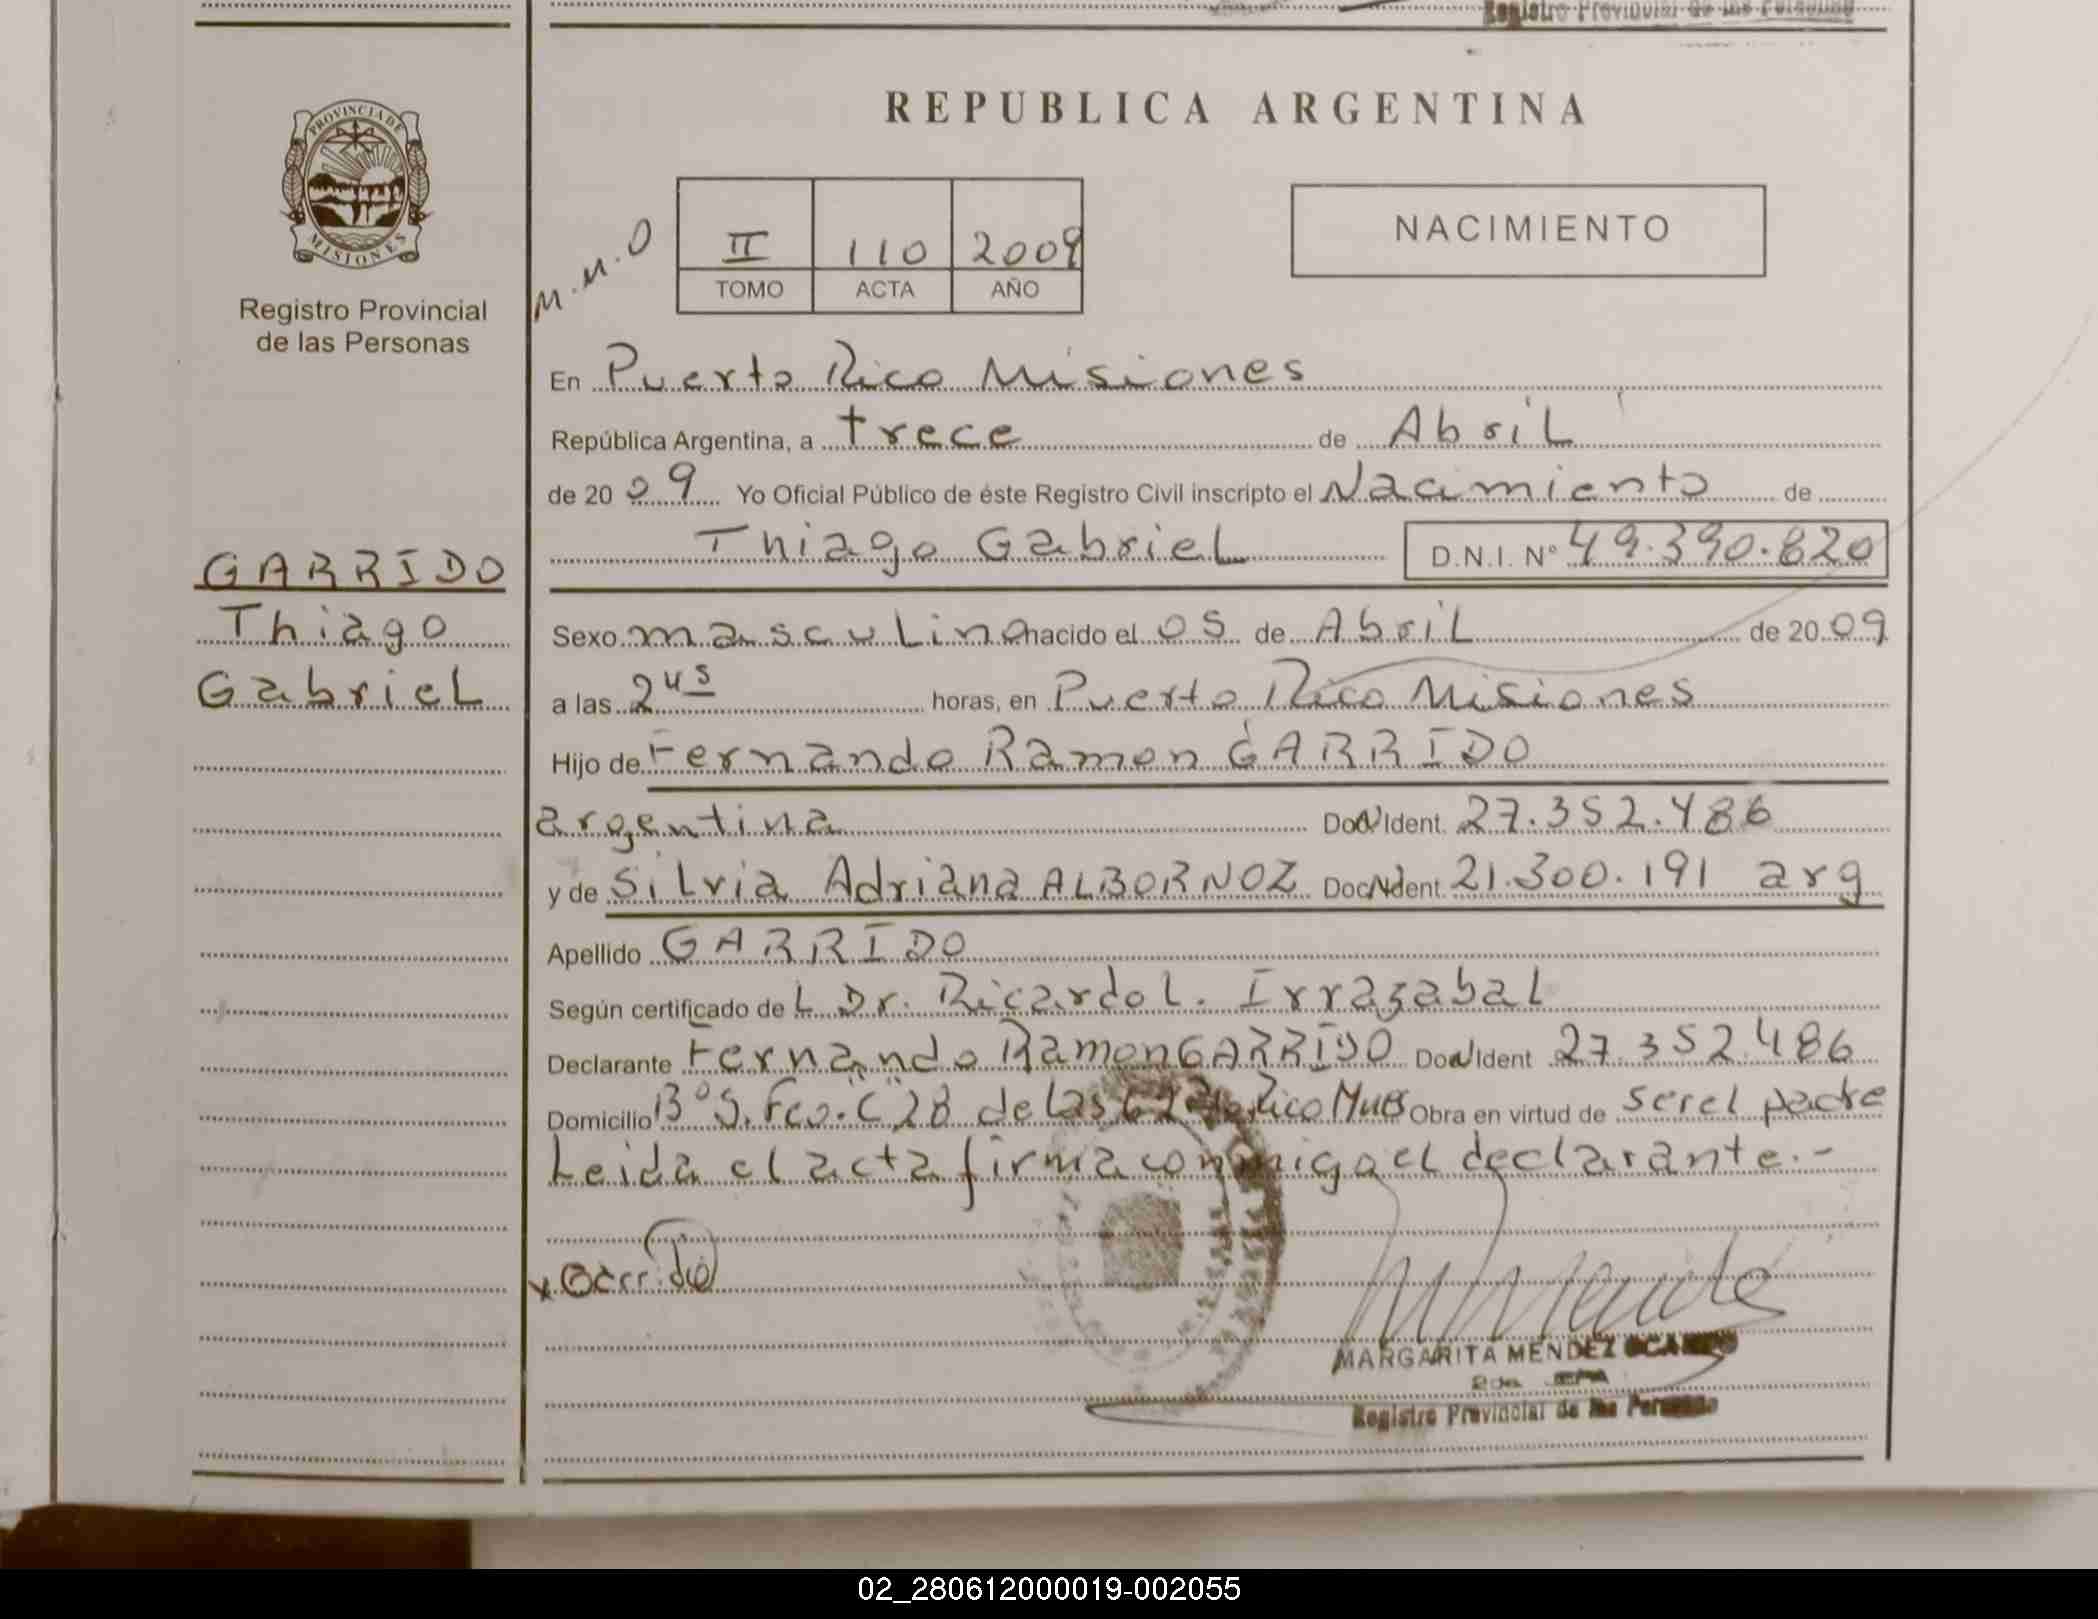 Registro Provincial de las Personas
REPUBLICA ARGENTINA
PROVINCIA DE
MISIONES
Registro Provincial
de las Personas
M.M.O
II 110 2009
TOMO ACTA AÑO
NACIMIENTO
En Puerto Rico Misiones
República Argentina, a trece de Abril
de 2009 Yo Oficial Público de éste Registro Civil inscripto el Nacimiento de
Thiago Gabriel D.N.I. Nº 49.390.820
GARRIDO
Thiago
Gabriel
Sexo masculino nacido el 05 de Abril de 2009
a las 2 45 horas, en Puerto Rico Misiones
Hijo de Fernando Ramon GARRIDO
argentina Doc Ident. 27.352.486
y de Silvia Adriana ALBORNOZ Doc Ident. 21.300.191 arg
Apellido GARRIDO
Según certificado de L Dr. Ricardo L. Irrazabal
Declarante Fernando Ramon GARRIDO Doc Ident 27.352.486
Domicilio Bº S. Fco. C 28 de las Rico Obra en virtud de ser el padre
Leida el acta firma conmigo el declarante.-
x Garrido
MARGARITA MENDEZ OCAMPO
Registro Provincial de las Personas
02_280612000019-002055